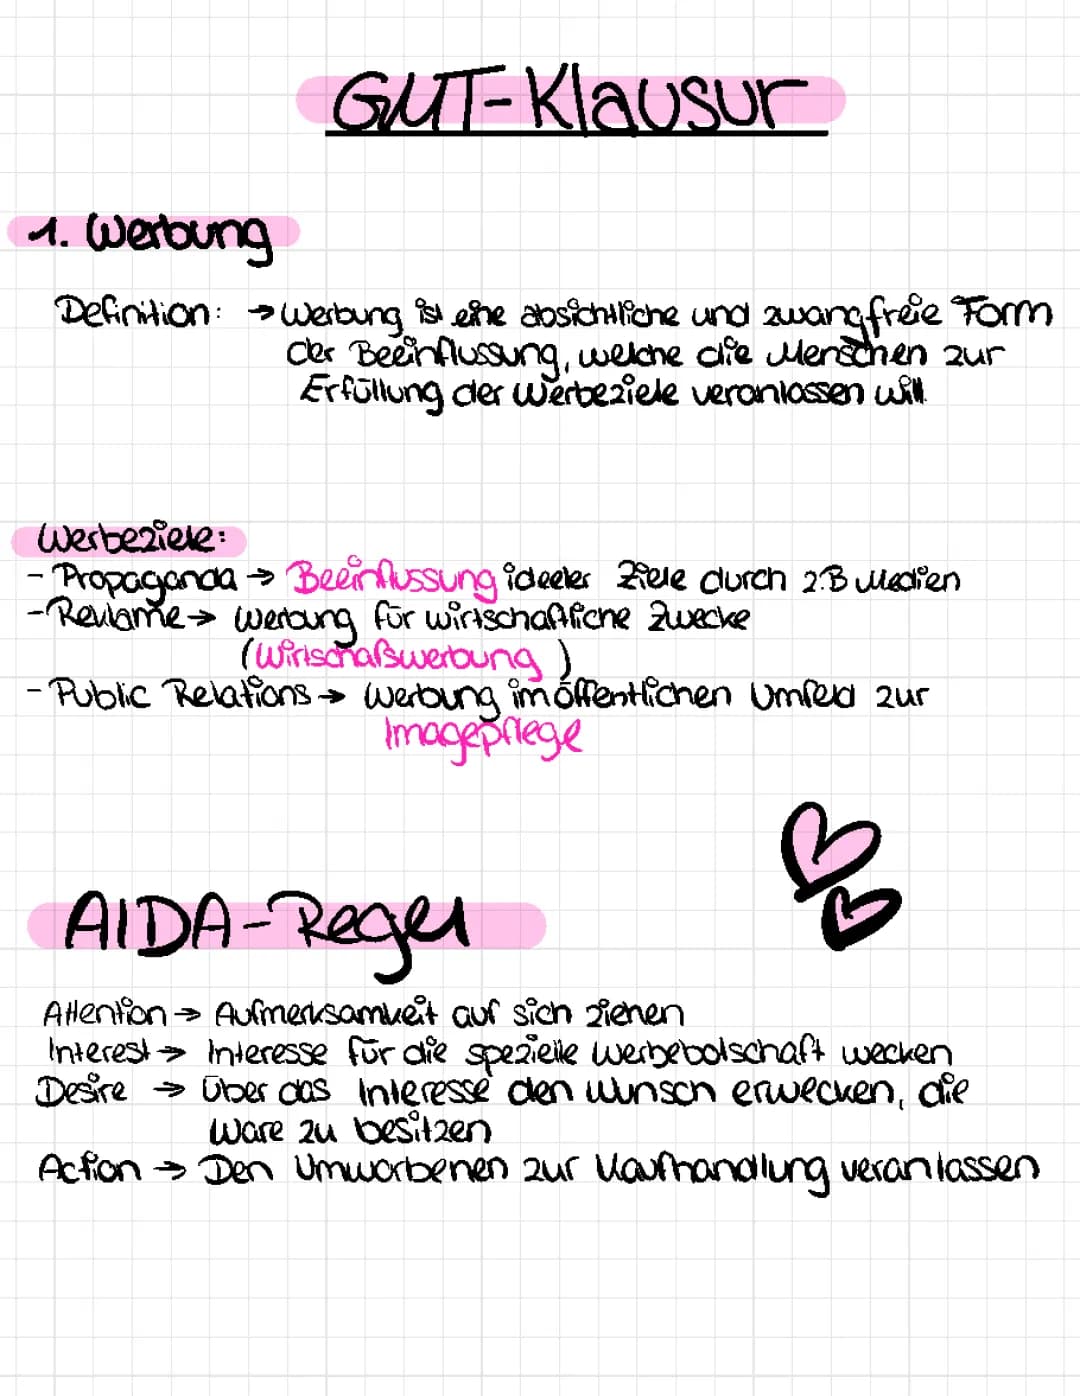 GUT-Klausur
1. Werbung
Definition: → Werbung ist eine absichtliche und zwangfreie Form
der Beeinflussung, welche die Menschen zur
Erfüllung der Werbeziele veranlassen will.
Werbeziele:
- Propaganda → Beeinflussung ideeler Ziele durch z.B Medien
- Reklame → Werbung für wirtschaftliche Zwecke
(Wirtschaftswerbung)
- Public Relations → Werbung im öffentlichen Umfeld zur
Imagepflege
AIDA-Regel
Attention → Aufmerksamkeit auf sich ziehen
Interest → Interesse für die spezielle Werbebotschaft wecken
Desire → Über das Interesse den Wunsch erwecken, die
Ware zu besitzen
Action → Den Umworbenen zur Kaufhandlung veranlassen